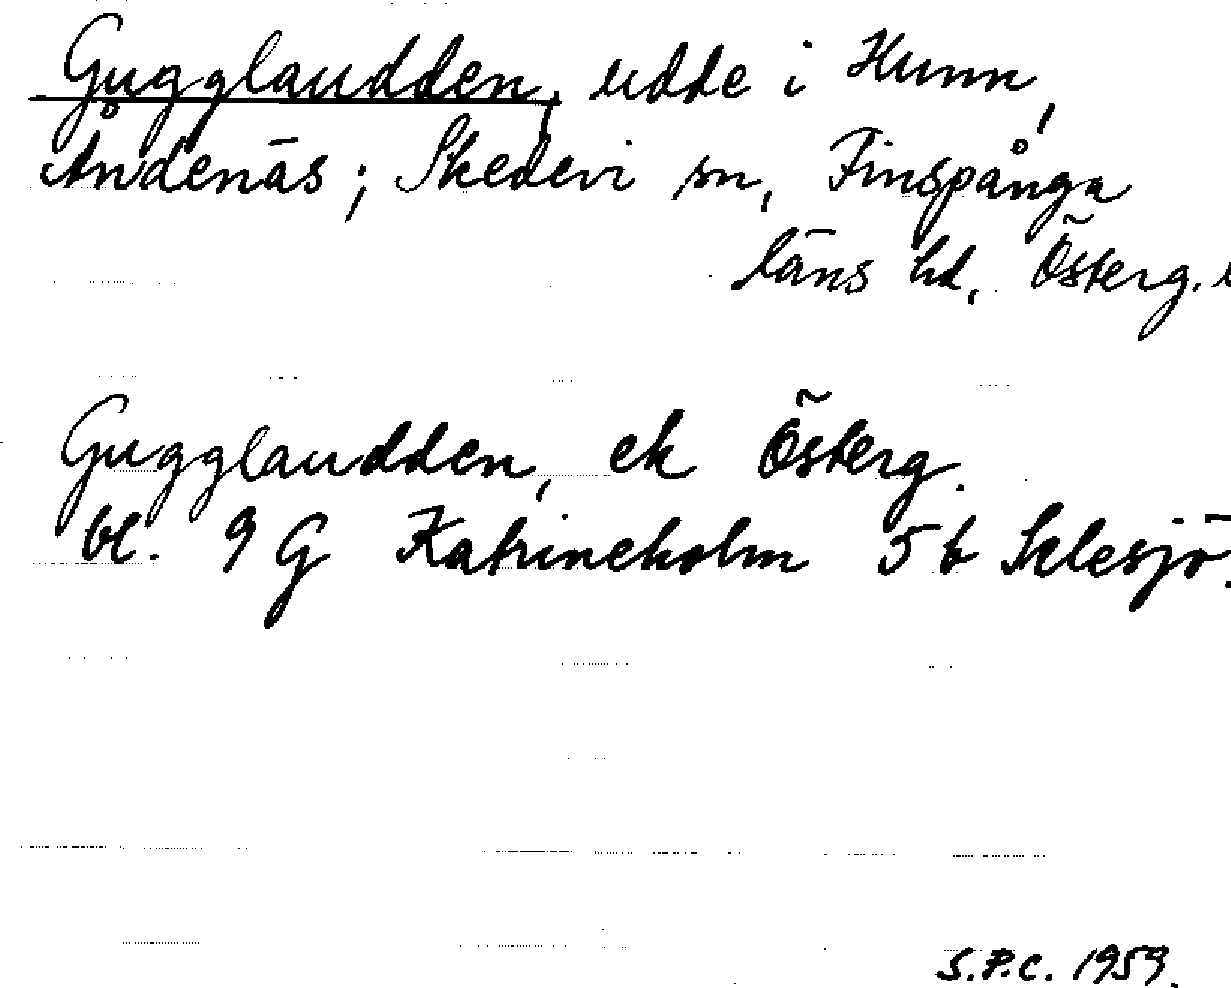 Gugglaudden, udde i Hunn,
Åndenäs; Skedevi sn, Finspånga
läns hd, Österg.
Gugglaudden, ek Österg.
bl. 9 G Katrineholm 5 b
S.P.C. 1959.